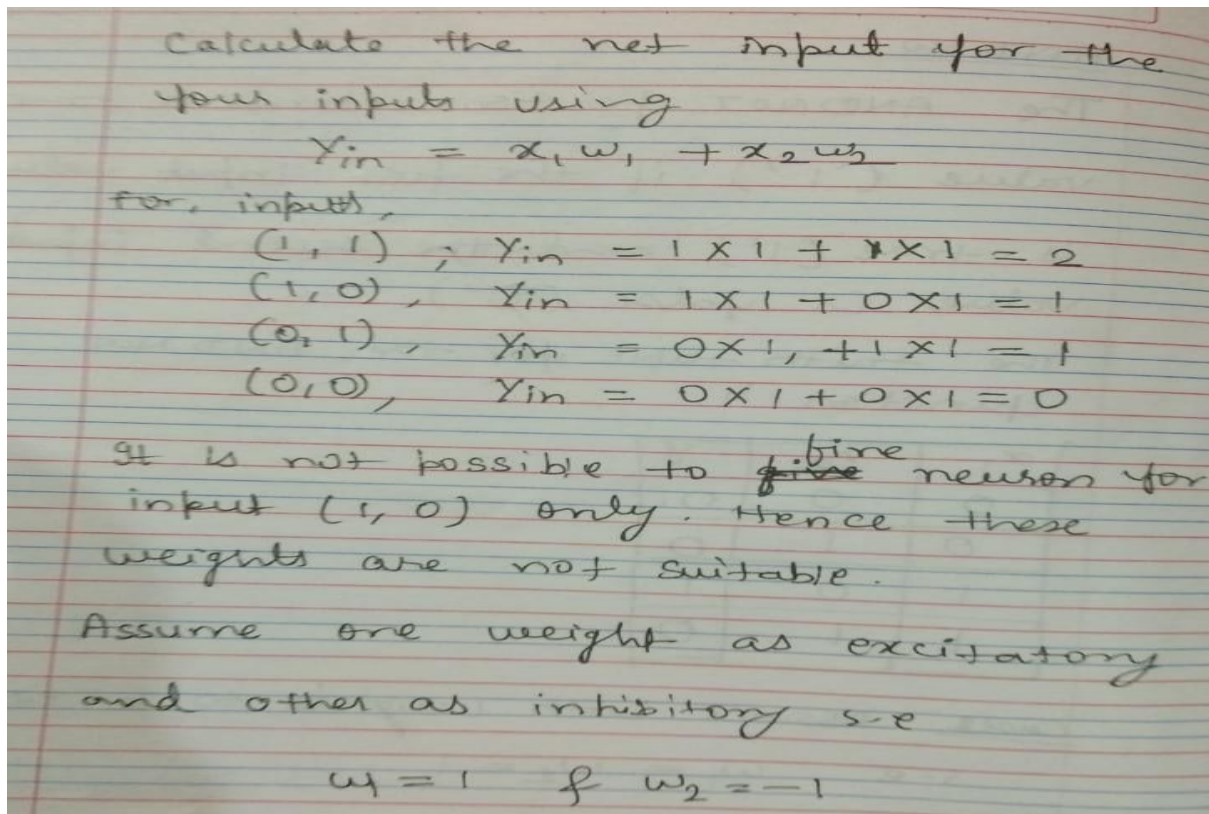 Calculate the net input for the
four inputs using
Yin = x₁w₁ + x₂w₂
for, inputs,
(1, 1) ; Yin = 1 × 1 + 1 × 1 = 2
(1, 0), Yin = 1 × 1 + 0 × 1 = 1
(0, 1), Yin = 0 × 1, + 1 × 1 = 1
(0, 0), Yin = 0 × 1 + 0 × 1 = 0
It is not possible to fire neuron for
input (1, 0) only. Hence these
weights are not suitable.
Assume one weight as excitatory
and other as inhibitory s.e
w1 = 1 & w₂ = -1